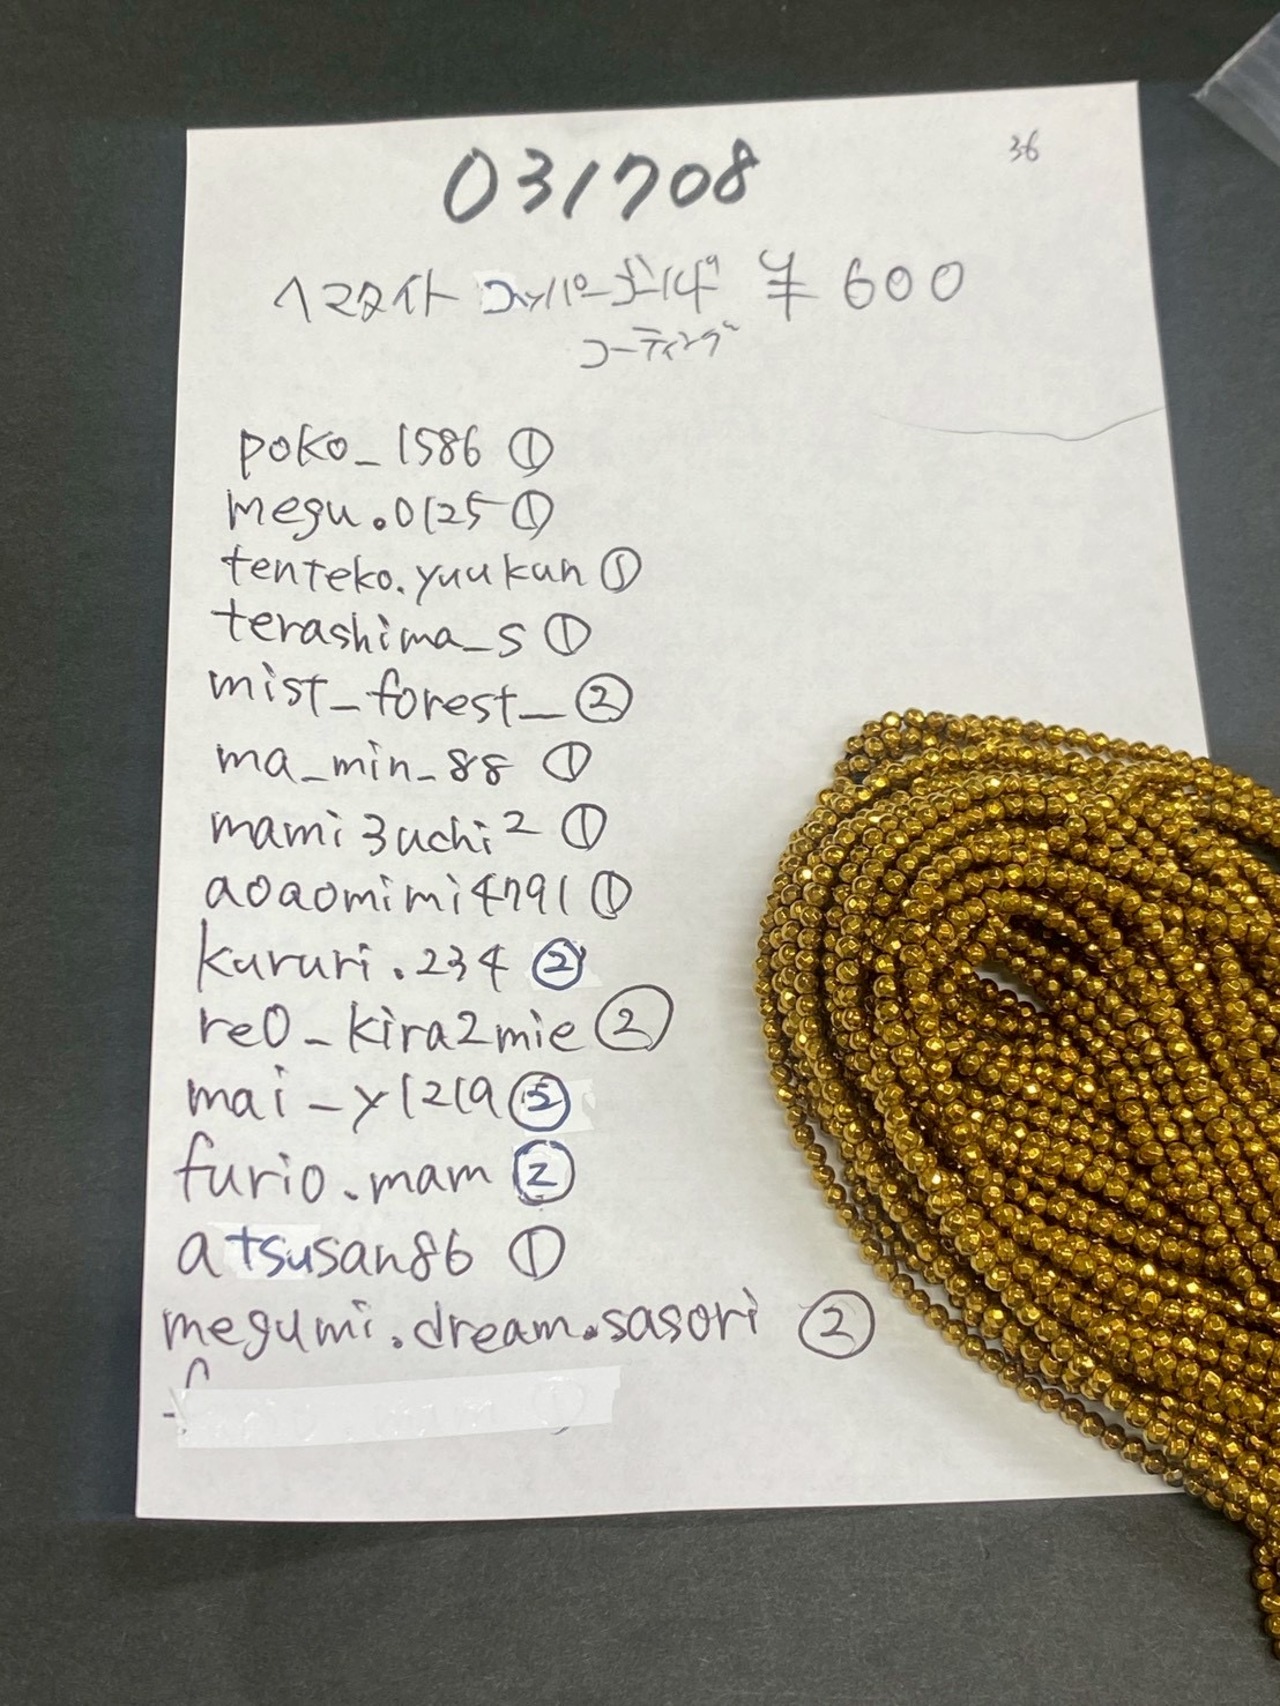 031708
36
ヘマタイト コッパーゴールド ¥600
コーティング
poko_1586 ①
megu.0125 ①
tenteko.yuukun ①
terashima_s ①
mist_forest_ ②
ma_min_88 ①
mami3uchi2 ①
aoaomimi4791 ①
kururi.234 ②
re0_kira2mie ②
mai_y1219 ⑤
furio.mam ②
atsusan86 ①
megumi.dream.sasori ②